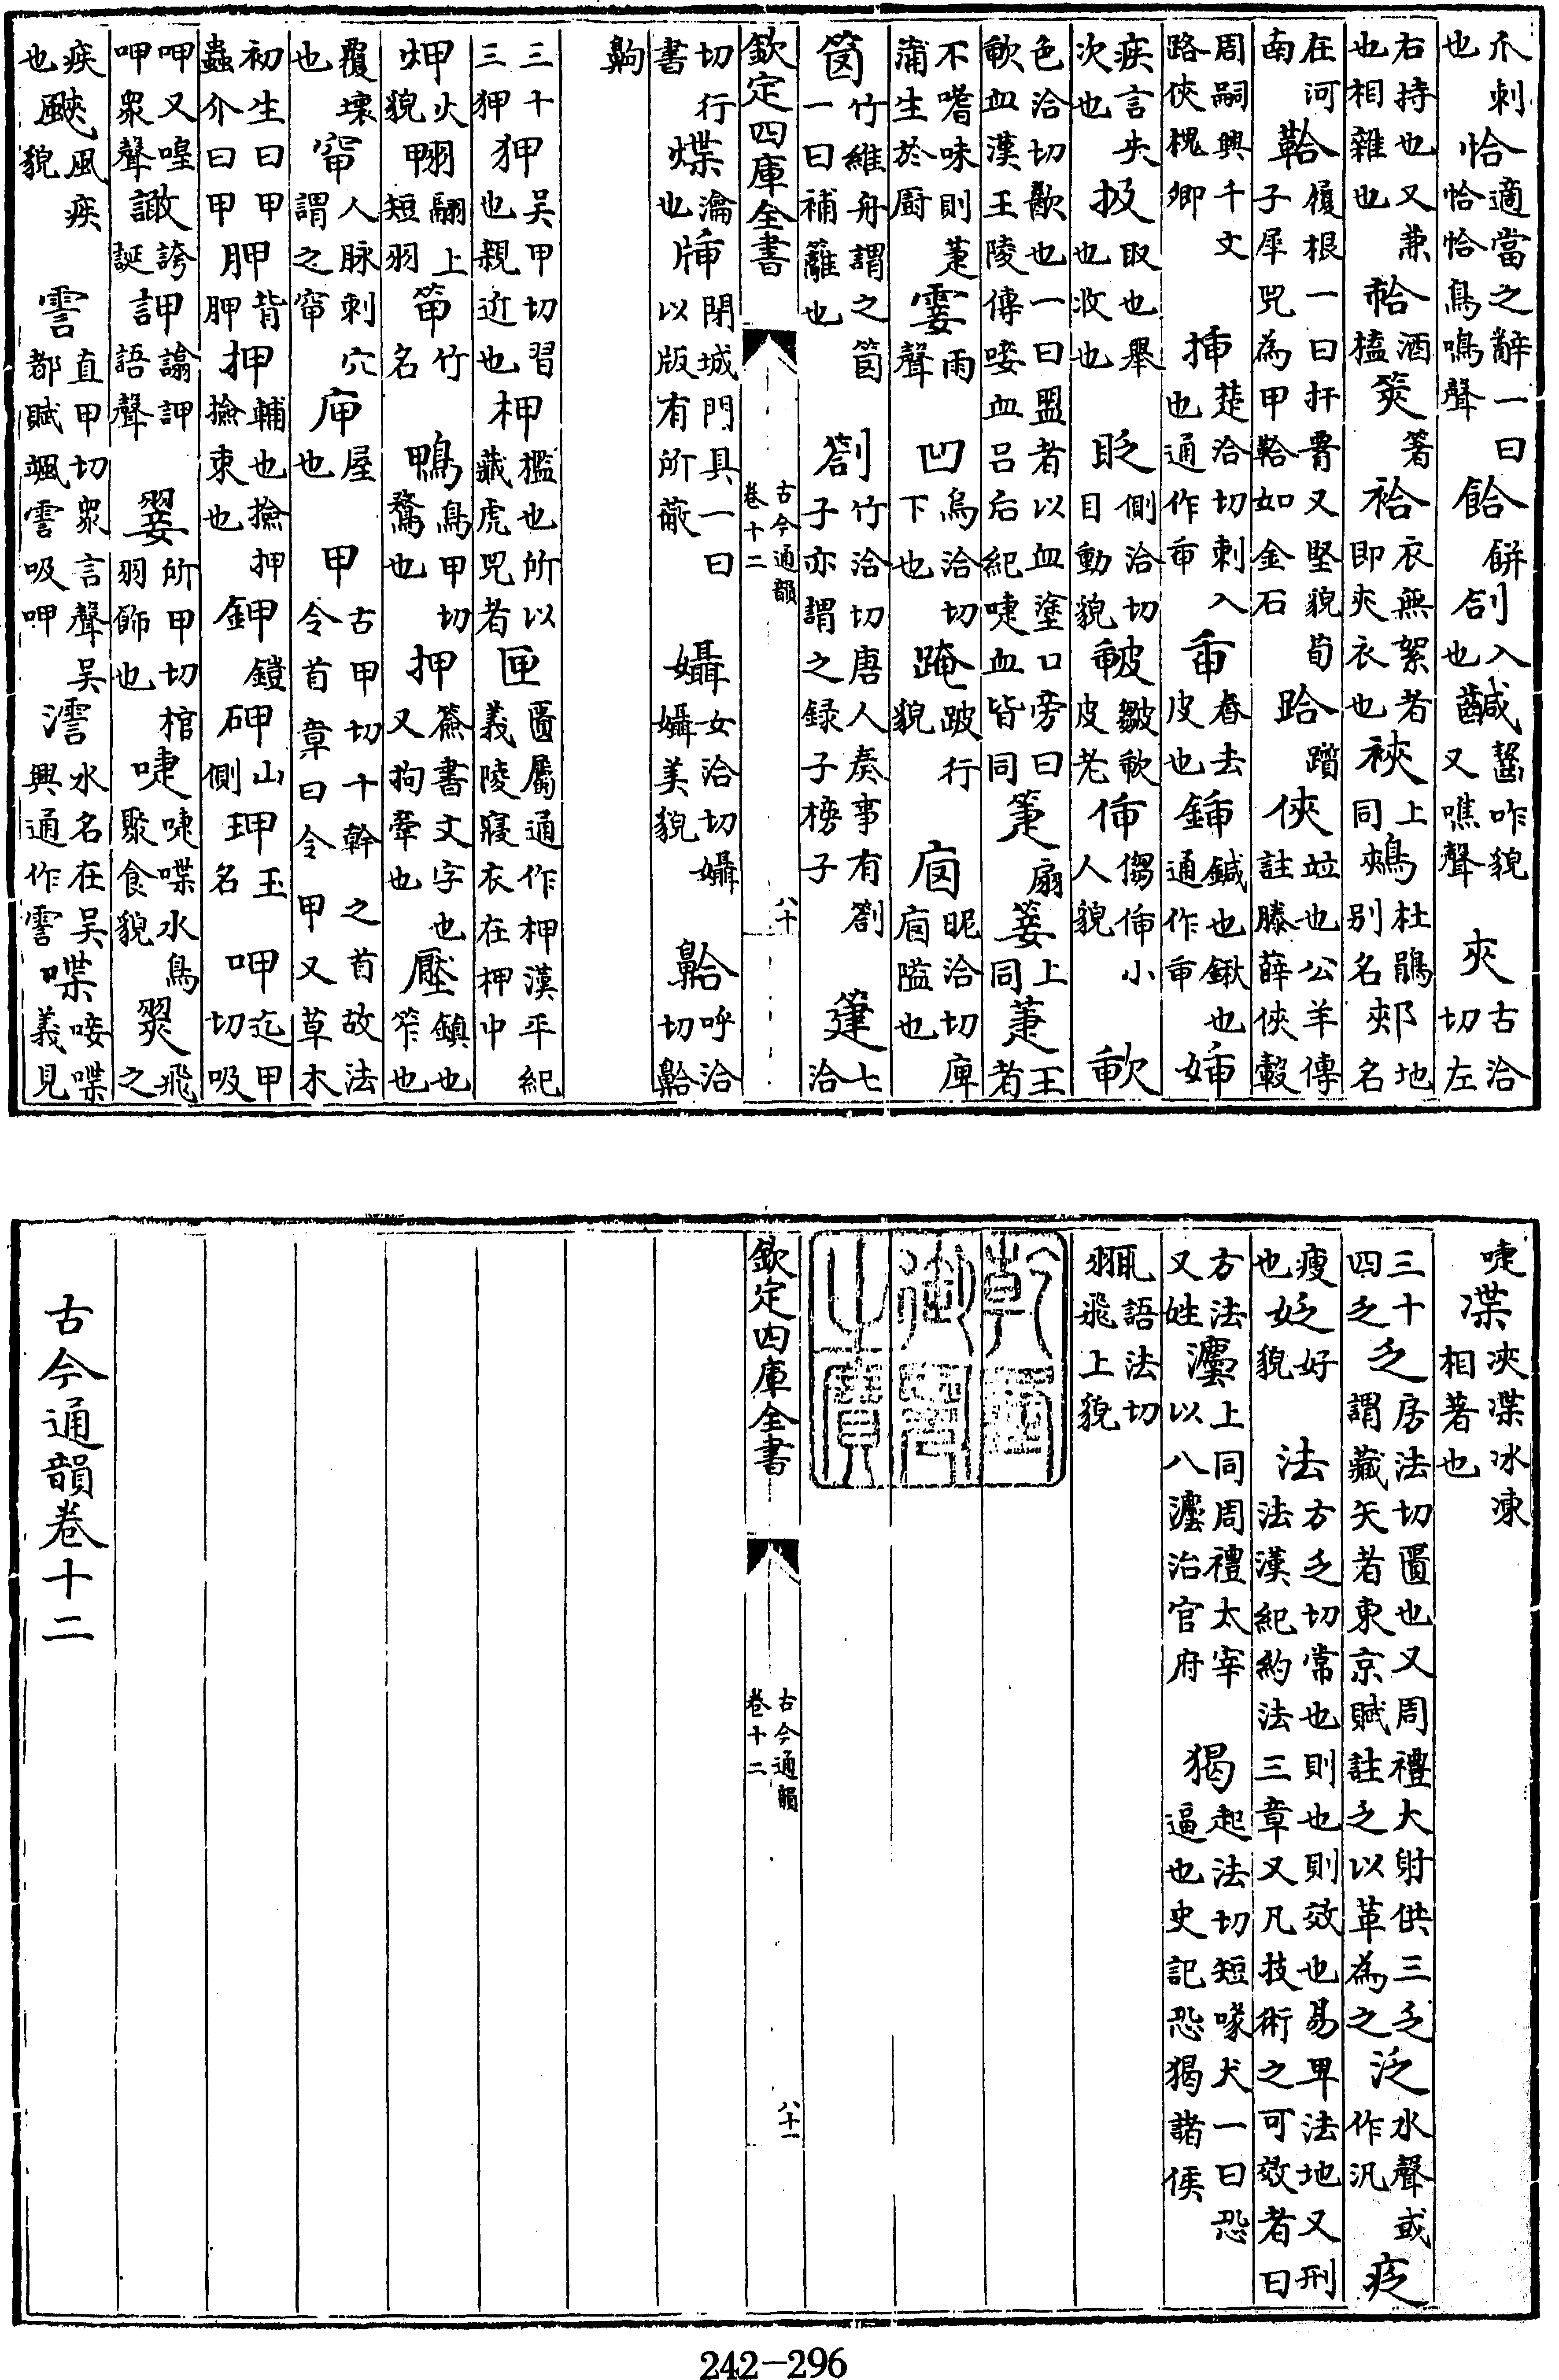 爪刺也恰適當之辭一曰恰恰鳥鳴聲餄餅劄入也鹹齧咋貌又噍聲夾古洽切左
右持也又兼也相雜也帢酒榼筴箸袷衣無絮者即夾衣也裌上同鵊杜鵑別名郟地名
在河南鞈履根一曰扞胷又堅貌荀子犀兕為甲鞈如金石跲躓俠竝也公羊傳註滕薛俠轂
周嗣興千文路俠槐卿插楚洽切刺入也通作臿臿舂去皮也鍤鍼也鍬也通作臿㛼
疾言失次也扱取也舉也收也眨側洽切目動貌皺皮老㑌㑳㑌小人貌歃
色洽切歠也一曰盟者以血塗口旁曰歃血漢王陵傳喢血呂后紀啑血皆同箑扇萐上同萐王者
不嗜味則萐蒲生於廚霎雨聲凹烏洽切下也跛行貌昵洽切庘隘也
竹維舟謂之筃一曰補籬也劄竹洽切唐人奏事有劄子亦謂之録子榜子七洽
欽定四庫全書
古今通韻
卷十二
八十
切行書煠瀹也閉城門具一曰以版有所蔽女洽切美貌呼洽切
齁
三十三狎狎吳甲切習也親近也柙檻也所以藏虎兕者匣匱屬通作柙漢平紀義陵寢衣在柙中
火貌翩上短羽竹名鴨鳥甲切鶩也押簽書文字也又拘羣也壓鎮也笮也
覆壞也人脉刺穴謂之窜屋也甲古甲切十幹之首故法令首章曰令甲又草木
初生曰甲蟲介曰甲胛背胛押輔也撿押撿束也鉀鎧砷山側玾玉名呷迄甲切吸
呷又喤呷眾聲誇誕譮訷語聲翣所甲切棺羽飾也啑啑喋水鳥聚食貌飛之
疾也颰風疾貌霅直甲切眾言聲吳都賦颯霅吸呷水名在吳興通作霅喋唼喋義見
啑渫浹渫冰凍相著也
三十四乏乏房法切匱也又周禮大射供三乏謂藏矢者東京賦註乏以革為之泛水聲或作汎疺
瘦也好貌法方乏切常也則也則效也易卑法地又刑法漢紀約法三章又凡技術之可效者曰
方法又姓上同周禮太宰以八灋治官府猲起法切短喙犬一曰恐逼也史記恐猲諸侯
語法切飛上貌
乾隆御覽之寶
欽定四庫全書
古今通韻
卷十二
八十一
古今通韻卷十二
242-296